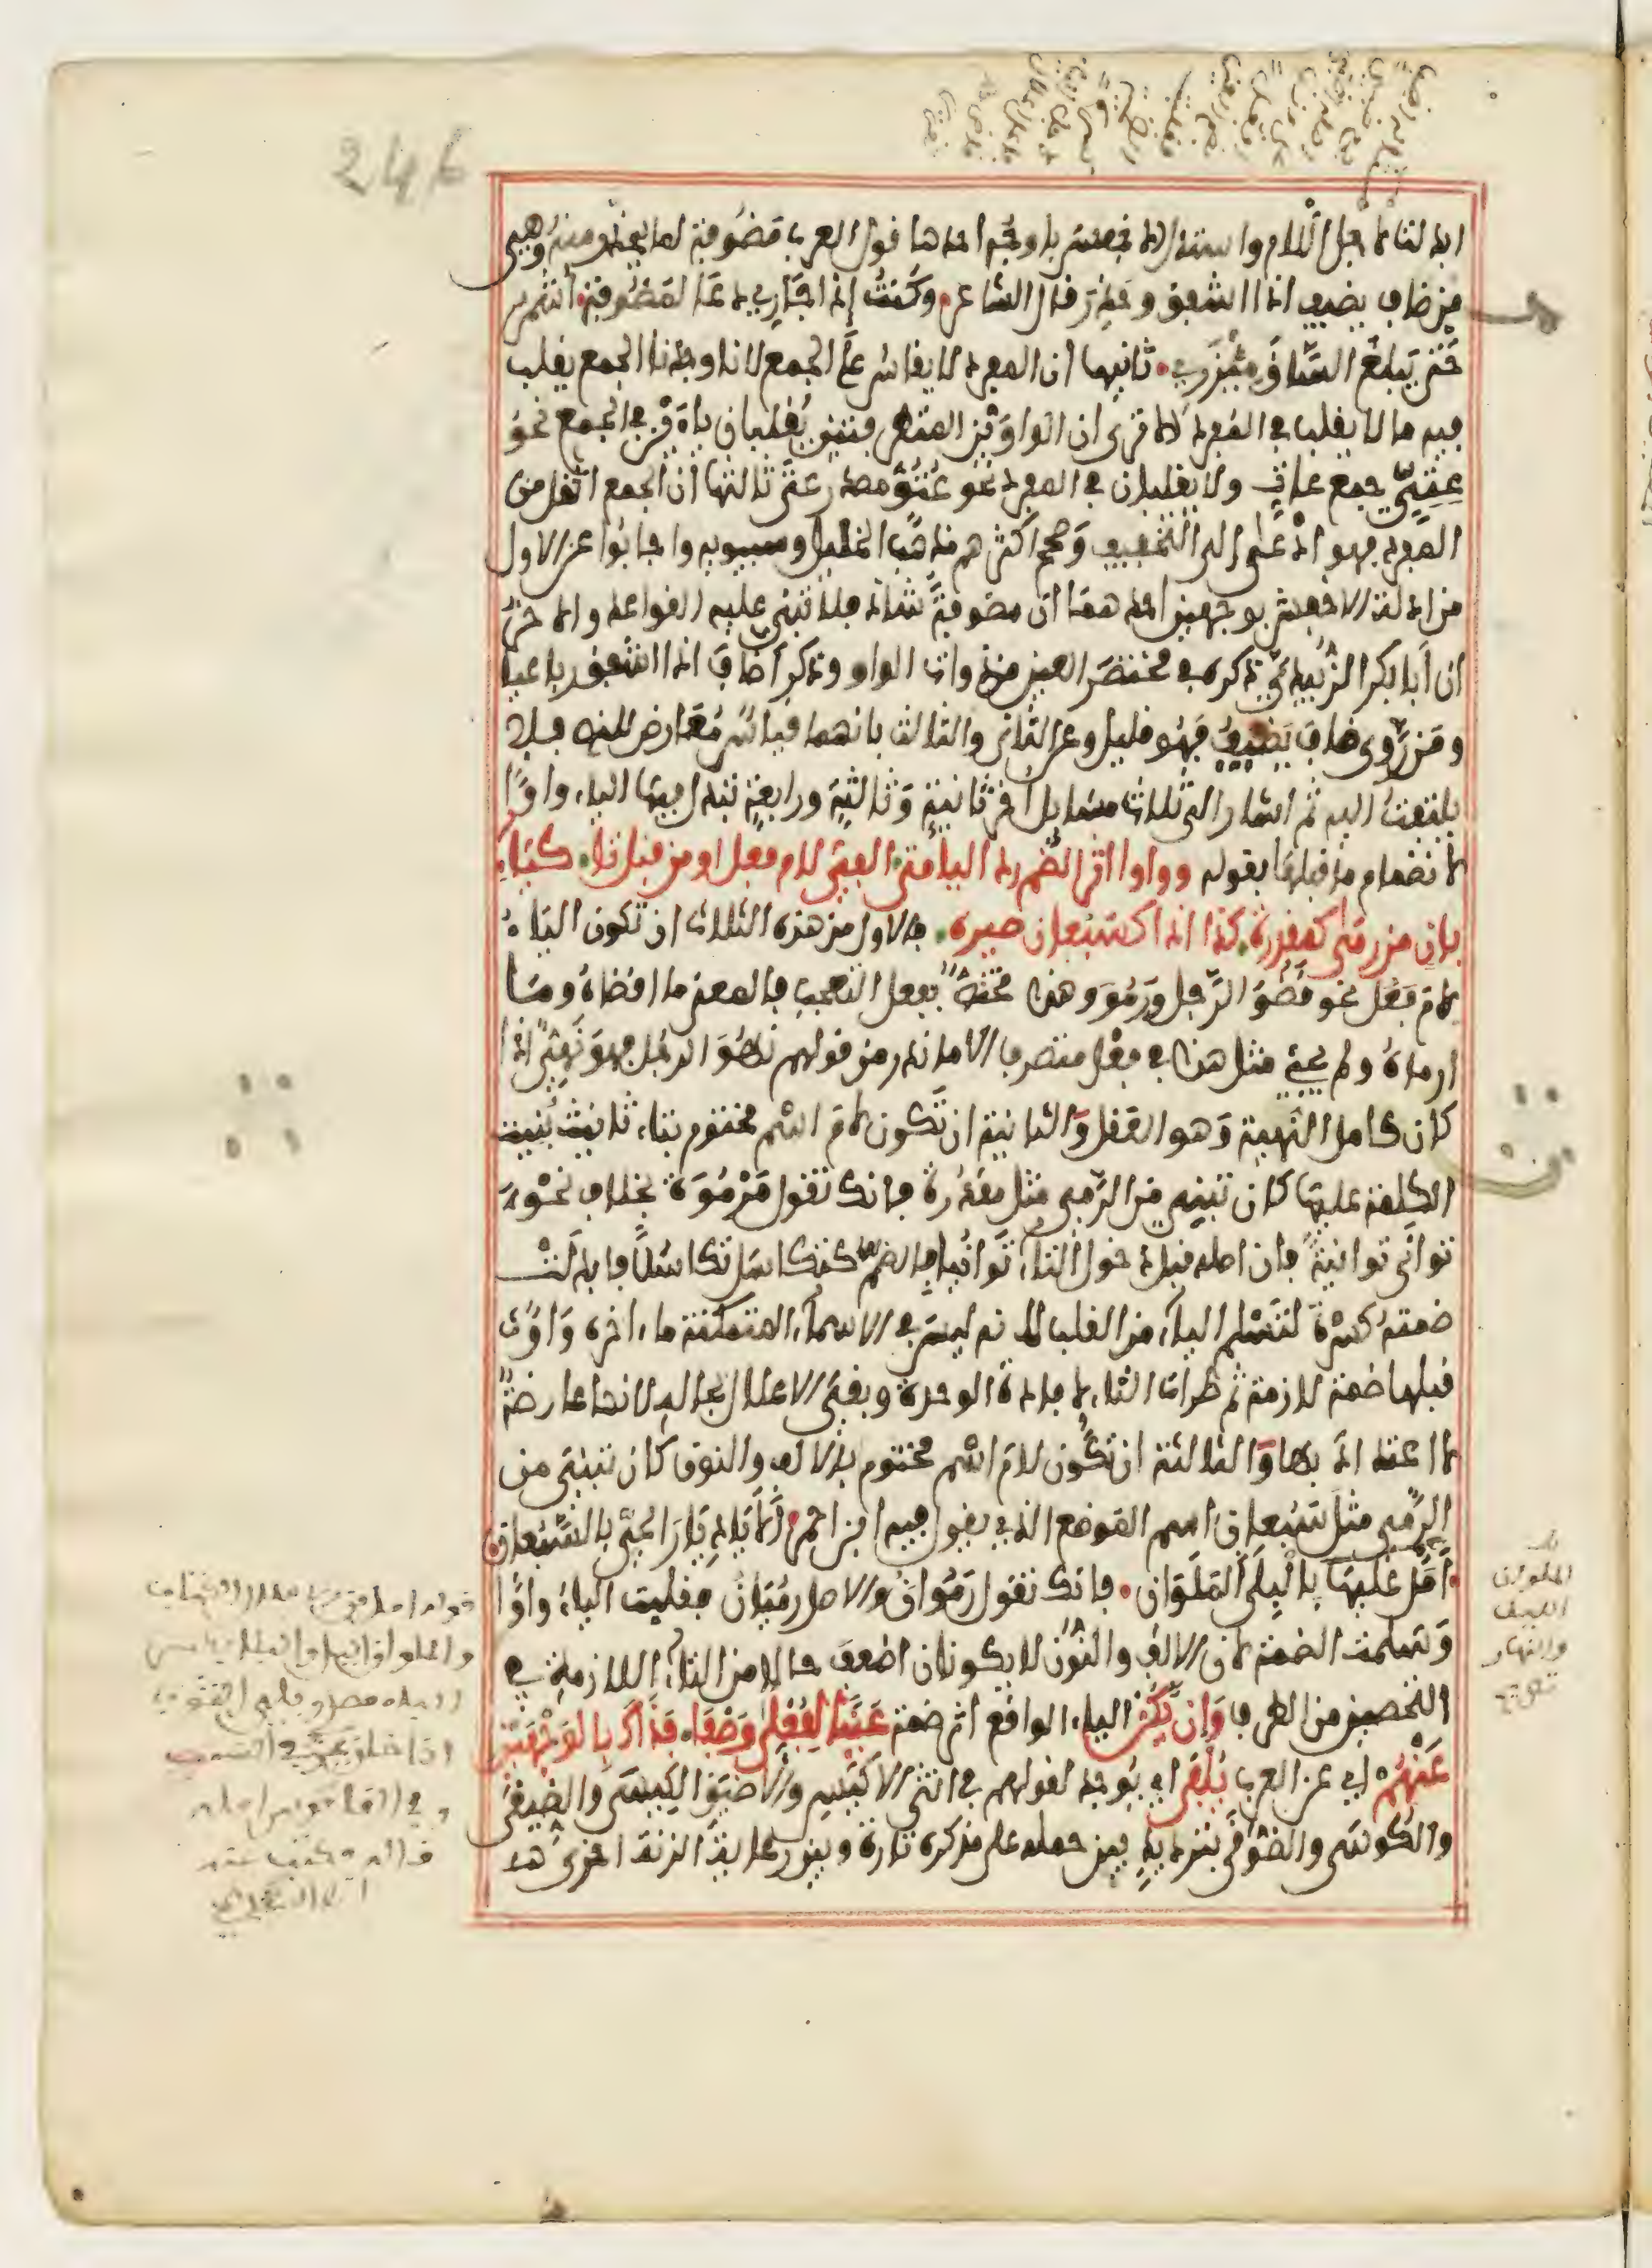 246
ابدلنا لاجل اللام واستدل الاخفش باوجه احدها قول العرب مضوفة لما يحذر منه وهي
من ضاف يضيف اذا اشفق وحذر قال الشاعر وكنت إذا جاري دعا لمضوفة أشمر
حتى يبلغ الساق مئزري ثانيها أن المفرد لا يقاس على الجمع لانا وجدنا الجمع يقلب
فيه ما لا يقلب في المفرد ألا ترى ان الواوين المتطرفتين يقلبان ياءين في الجمع نحو
عتي جمع عات ولا يقلبان في المفرد نحو عتو مصدر عتى ثالثها أن الجمع اثقل من
المفرد فهو ادعى الى التخفيف وصحح اكثرهم مذهب الخليل وسيبويه واجابوا عن الاول
من ادلة الاخفش بوجهين احدهما ان مضوفة شاذ فلا تبنى عليه القواعد والاخر
ان أبا بكر الزبيدي ذكره في مختصر العين من ذوات الواو وذكر أضاف اذا اشفق رباعيا
ومن روى ضاف يضيف فهو قليل وعن الثاني والثالث بانهما قياس معارض للنص فلا
يلتفت اليه ثم اشار الى ثلاث مسايل اخر ثانية وثالثة ورابعة تبدل فيها الياء واوا
لانضمام ما قبلها بقوله وواوا اثر الضم رد اليا متى الفي لام فعل او من قبل تا كتاء
بان من رمى كمقدرة كذا اذا كسبعان صيره فالاول من هذه الثلاث ان تكون الياء
لام فعل نحو قضو الرجل ورمو وهذا مختص بفعل التعجب فالمعنى ما اقضاه وما
ارماه ولم يجئ مثل هذا في فعل متصرف الا ما ندر من قولهم نهو الرجل فهو نهي اذا
كان كامل النهية وهو العقل والثانية ان تكون لام اسم مختوم بتاء تانيث بنيت
الكلمة عليها كان تبني من الرمي مثل مقدرة فانك تقول مرموة بخلاف نحو
توانى توانية فان اصله قبل دخول التاء توانيا بالضم كتكاسل تكاسلا فابدلت
ضمته كسرة لتسلم الياء من القلب لانه ليس في الاسماء المتمكنة ما اخره واو
قبلها ضمة لازمة ثم طرات التاء لافادة الوحدة وبقي الاعلال بحاله لانها عارضة
لا اعتداد بها والثالثة ان تكون لام اسم مختوم بالالف والنون كان تبني من
الرمي مثل سبعان اسم الموضع الذي يقول فيه ابن احمر ألا يا ديار الحي بالسبعان
أمل عليها بالبلى الملوان فانك تقول رموان والاصل رميان فقلبت الياء واوا
وسلمت الضمة لان الالف والنون لا يكونان اضعف حالا من التاء اللازمة في
التحصين من الطرف وإن تكن الياء الواقع اثر ضمة عينا لفعلى وصفا فذاك بالوجهين
عنهم اي عن العرب يلفى اي يوجد لقولهم في انثى الاكيس والاضيق الكيسى والضيقى
والكوسى والضوقى بترديد بين حمله على مذكره تارة وبين رعاية الزنة اخرى هذا
الملوان
الليل
والنهار